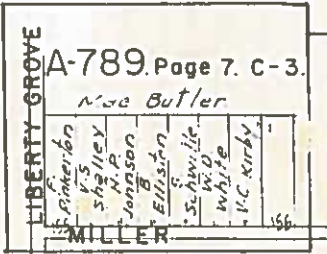 LIBERTY GROVE
A-789. Page 7. C-3.
Mae Butler
F. Pinkerton
V.S. Shalley
H.P. Johnson
B. Ellisten
S. Schwille
W.D. White
V.C. Kirby
MILLER